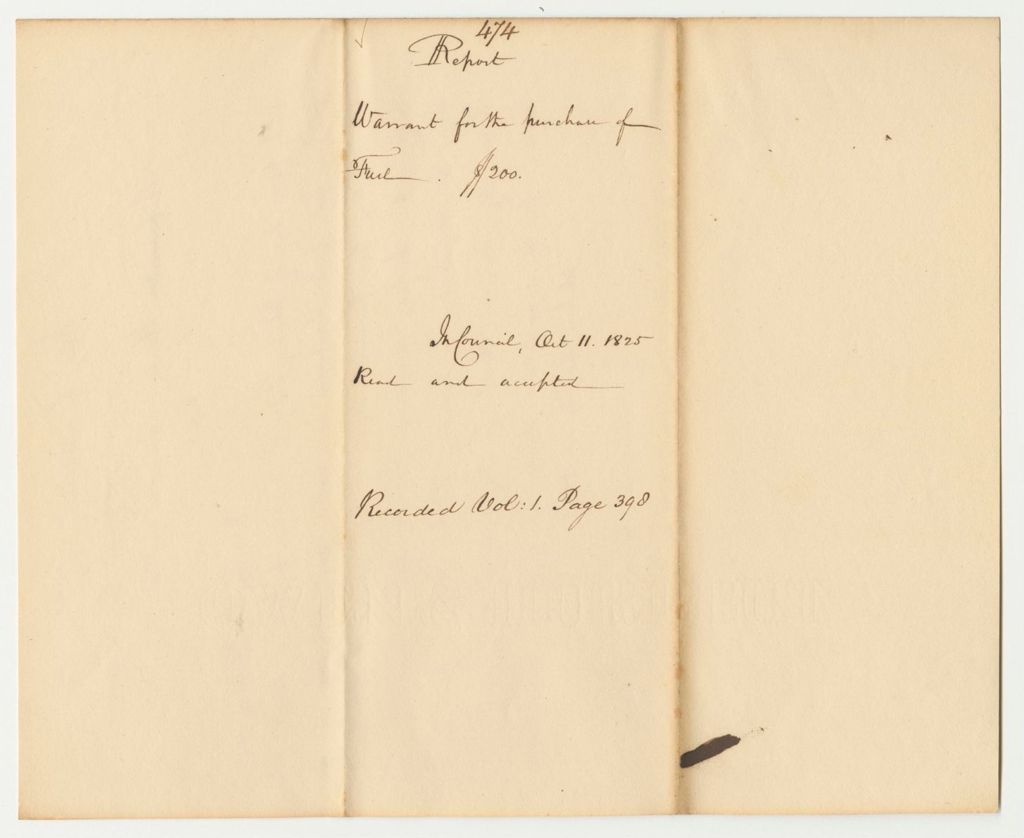 474
Report
Warrant for the purchase of
Fuel. $200.
In Council, Oct 11. 1825
Read and accepted
Recorded Vol: 1. Page 398